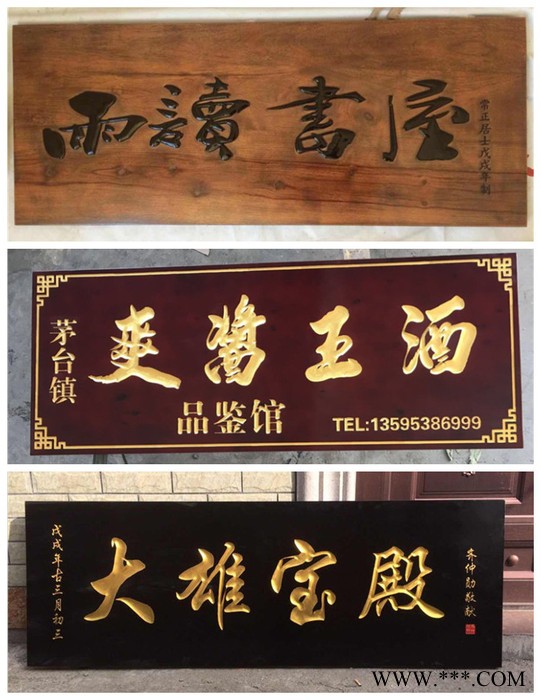 雨讀書屋
常正居士戊戌年制
茅台镇
爽醬王酒
品鉴馆
TEL:13595386999
戊戌年古三月初三
大雄宝殿
齐仲勛敬献
WWW.***.COM